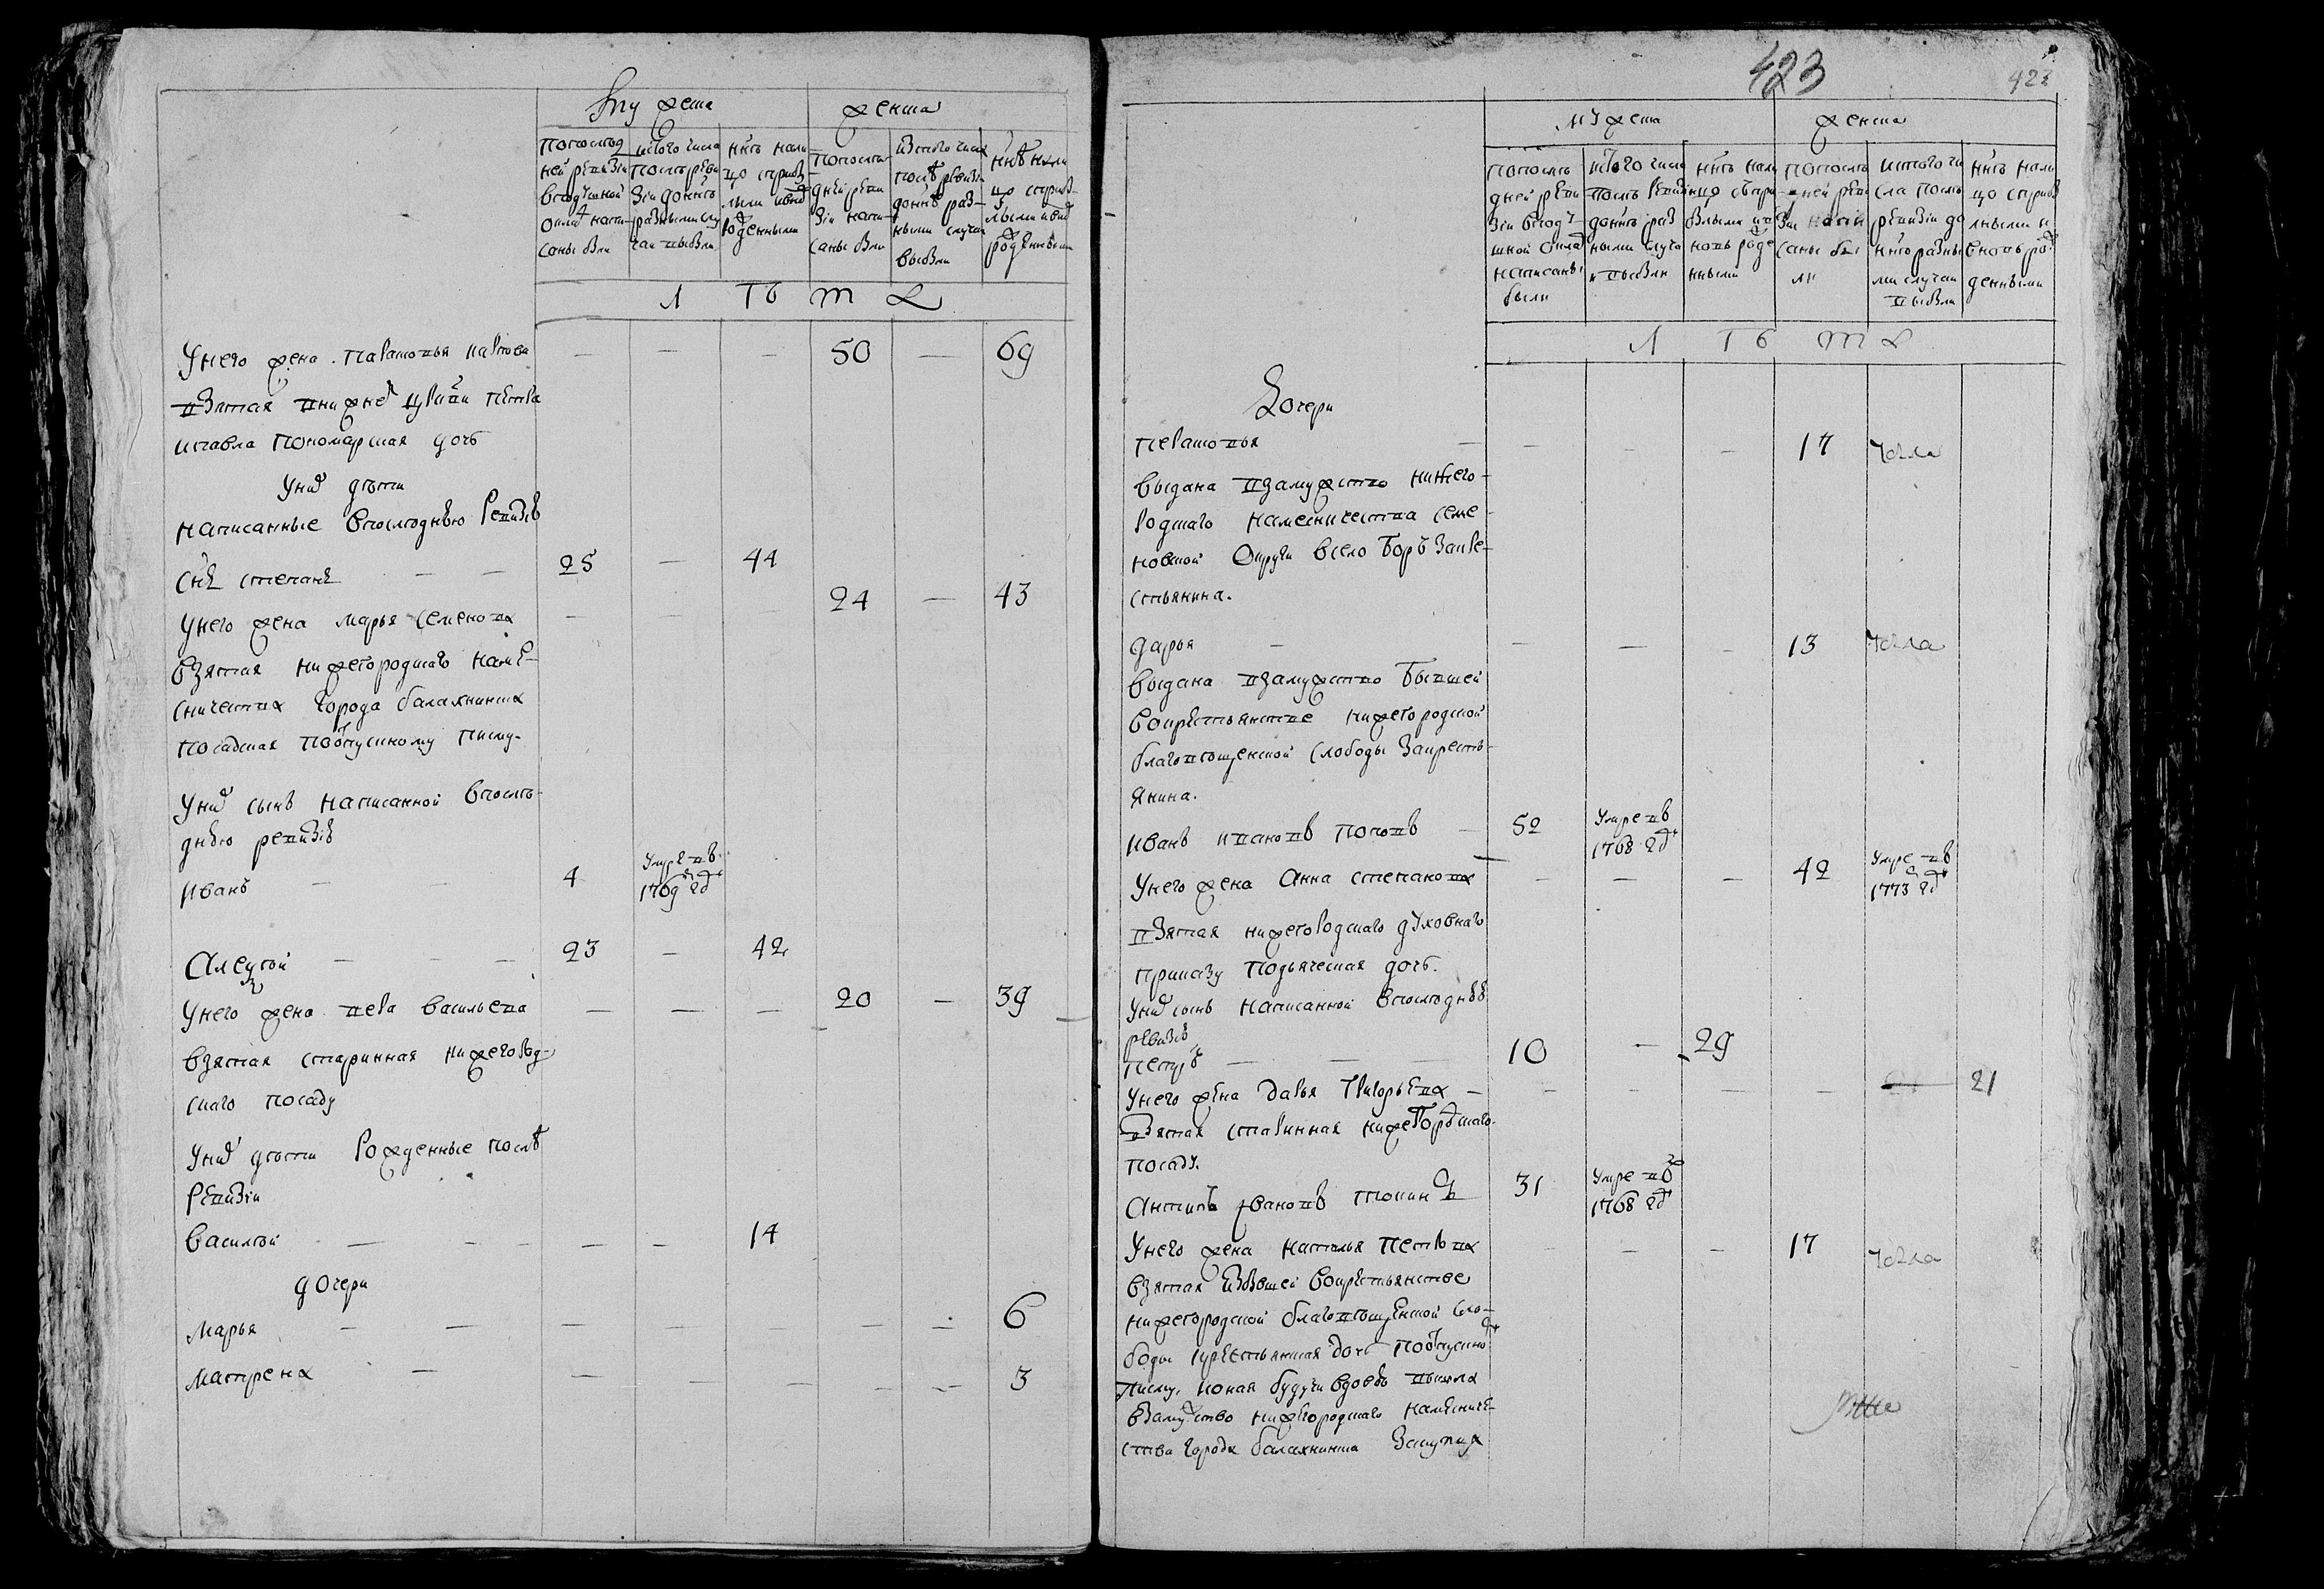 Мужеска женска
По последней ревизіи в подушной оклад написаны были
Ис того числа после ревизіи до ныне разными случаи выбыли
Ныне на лицо с прибылыми и вновь рожденными
По последней ревизіи написаны были
Из того числа после ревизіи до ныне разными случаи выбыли
Ныне на лицо с прибылыми и вновь рожденными
Л Ѣ Т А
У него жена Парасковья — — — 50 — 69
взятая в Нижнем церкви Петра
и Павла пономарская дочь
У них дети
написанные в последнюю ревизию
сын Степан — — 25 — 44
У него жена Марья Семенова — — — 24 — 43
взятая Нижегородскаго наме-
сничества города Балахнинска
посадская по отпускному письму
У них сын написанной в после-
днюю ревизию
Иванъ — — 4 Умре в 1769 год
Алексей — — — 23 — 42
У него жена Васильева — — — 20 — 39
взятая старинная Нижегород-
скаго посаду
У них дети рожденные после
ревизіи
Василей — — — — — 14
дочери
Марья — — — — — — — 6
Матрена — — — — — — 3
423
423
Мужеска женска
По последней ревизіи в подушной оклад написаны были
Ис того числа после ревизіи до ныне разными случаи выбыли
Ныне на лицо с прибылыми и вновь рожденными
По последней ревизіи написаны были
Ис того числа после ревизіи до ныне разными случаи выбыли
Ныне на лицо с прибылыми и вновь рожденными
Л Ѣ Т А
Дочери
Парасковья — — — — 17
выдана в замужство Нижего-
родскаго намесничества Семе-
новской округи в село Боръ за кре-
стьянина.
Дарья — — — — 13
выдана в замужство бывшей
в крестьянстве Нижегородской
Благовещенской слободы за кресть-
янина.
Иванъ Ивановъ Поповъ — 52 Умре в 1768 год
У него жена Анна Степанова — — — 42 Умре в 1773 год
взятая Нижегородскаго духовнаго
приказу подьяческая дочь.
У них сынъ написанной в последнее
ревизіе
Петръ — — — 10 — 29
У него жена Дарья Григорьева — — — — — 21
взятая старинная Нижегородскаго
посаду.
Антипъ Ивановъ 31 Умре в 1768 год
У него жена Наталья Петрова — — — 17
взятая из бывшей в крестьянстве
Нижегородской Благовещенской сло-
боды крестьянская дочь по отпускному
письму, и оная будучи вдовою вышла
в замужство Нижегородскаго намесниче-
ства города Балахнинска за купца